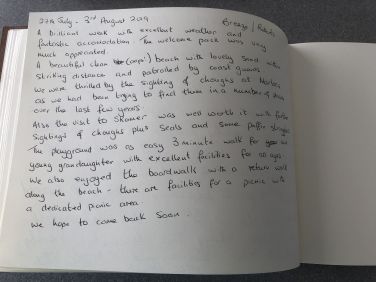 27th July - 3rd August 2019
A brilliant week with excellent weather and
fantastic accomodation. The welcome pack was very
much appreciated.
A beautiful clean beach with lovely sand within
striking distance and patrolled by coast guards.
We were thrilled by the sighting of choughs at
as we had been trying to find them in a number of
over the last few years.
Also the visit to Skomer was well worth it with further
sightings of choughs plus seals and some puffin
The playground was an easy 3 minute walk for our
young grandaughter with excellent facilities for all ages.
We also enjoyed the boardwalk with a return walk
along the beach - there are facilities for a picnic with
a dedicated picnic area.
We hope to come back soon.